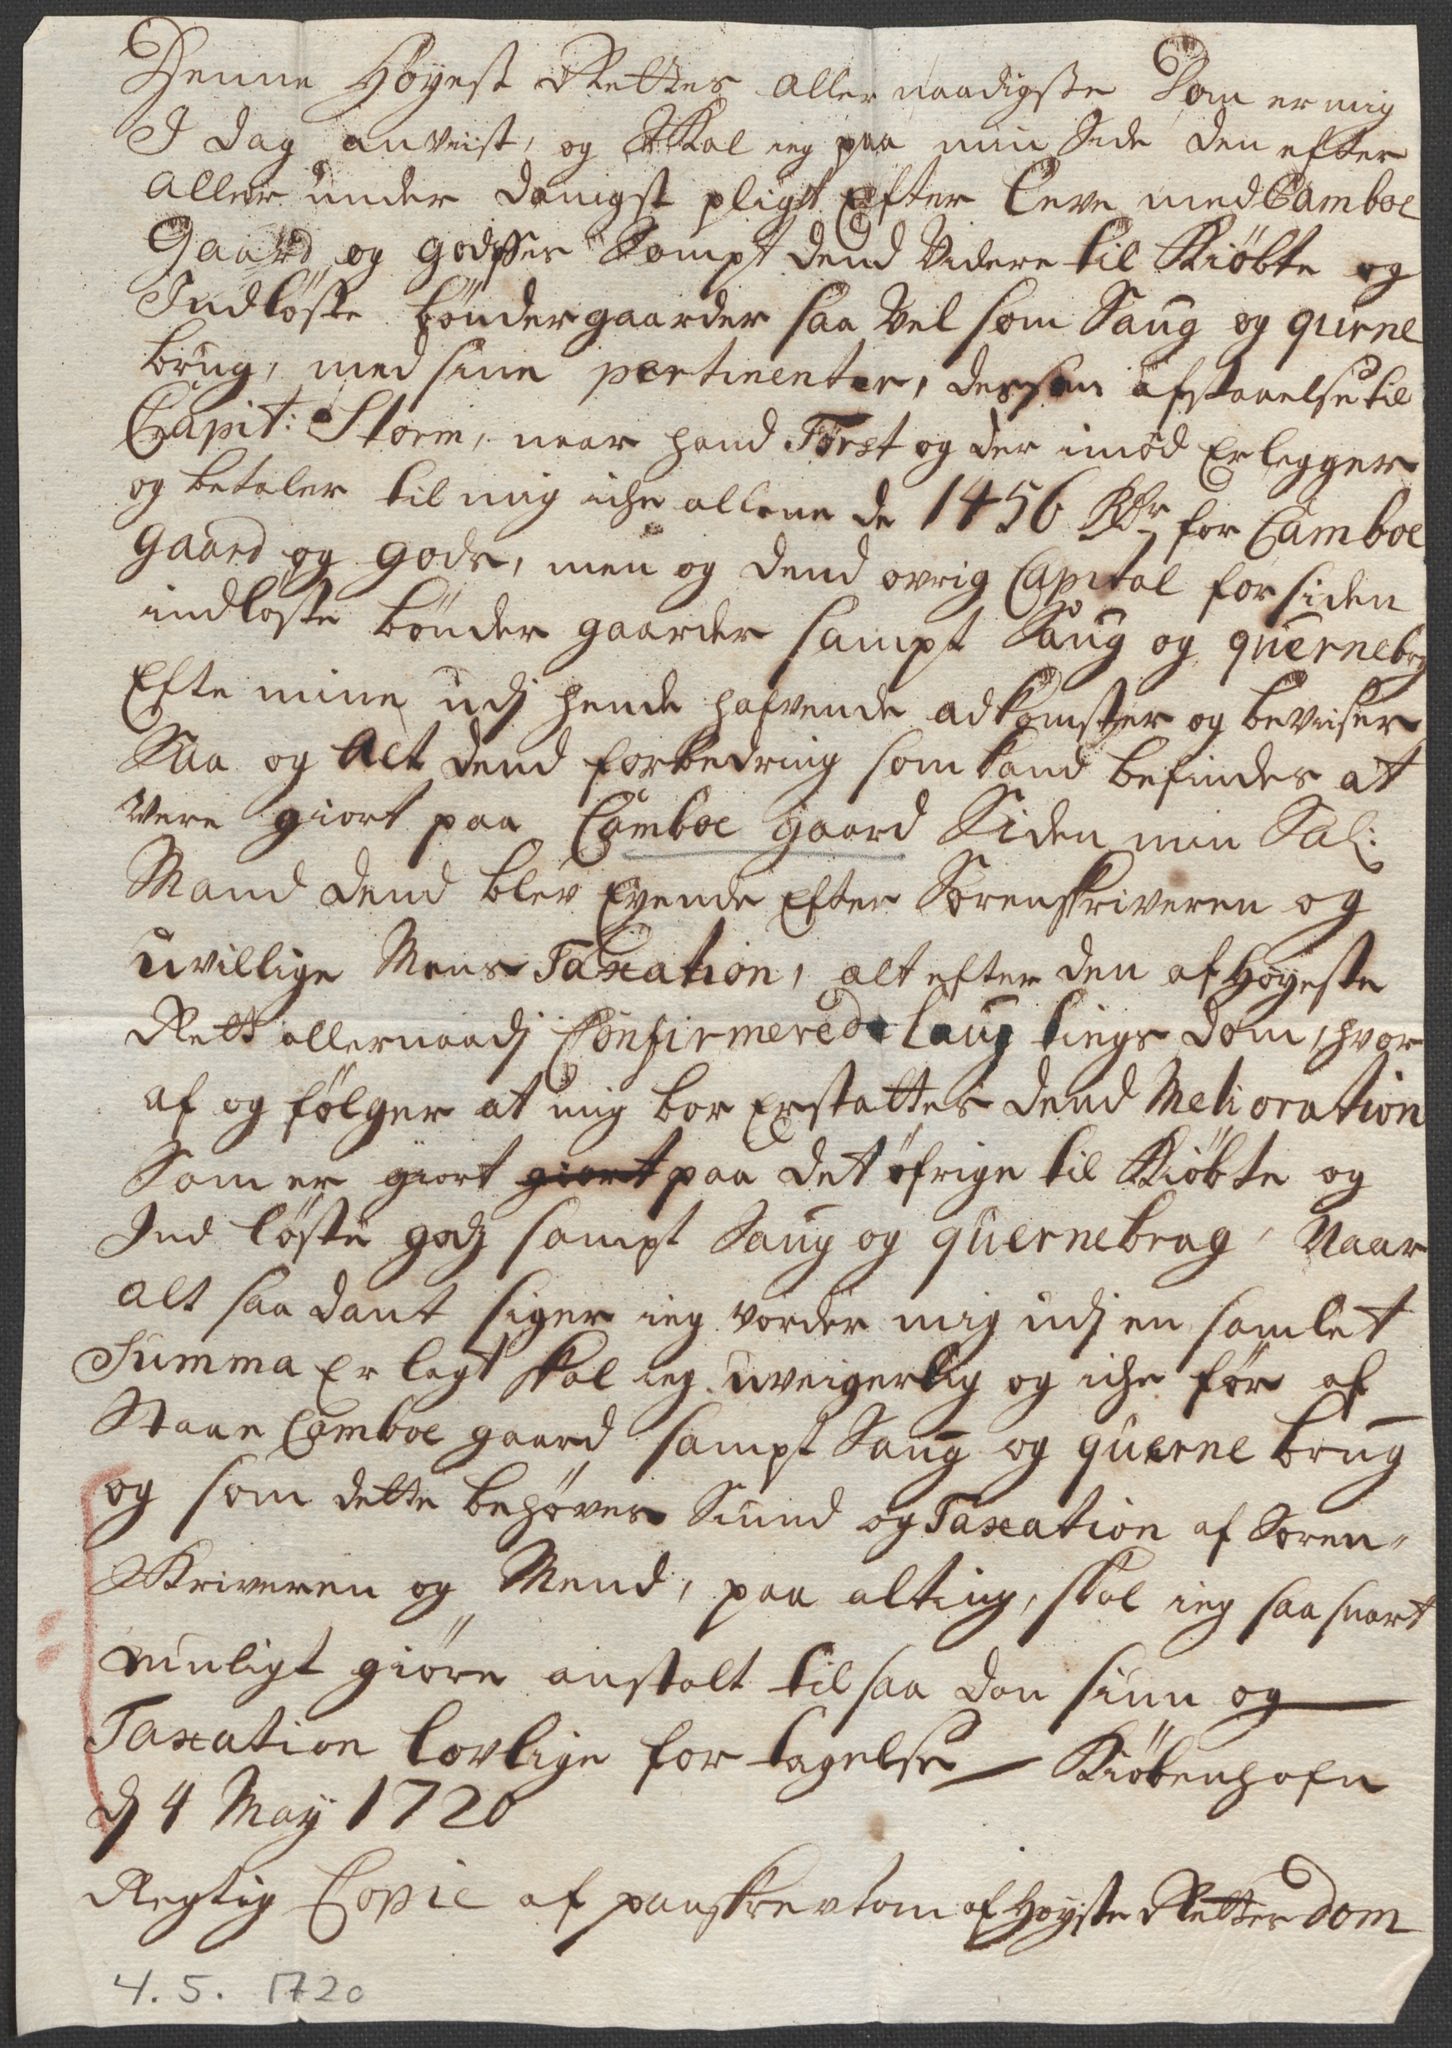 Denne Høyest Rettes aller naadigste Dom er mig
I dag anviist, og skal ieg paa min Side den efter
aller under danigst pligt Efter leve med Camboe
Gaard og godsses Sampt dend Videre til Kiöbte og
Indlöste böndergaarder saa Vel som Saug og querne
brug, med sine pertinenter, dessen afstaaelse til
Capit: Storm, naar hand Först og der imod Erlegger
og betaler til mig iche allene de 1456 Rdr for Camboe
gaard og gods, men og dend ovrig Capital for siden
indloste bönder gaarder sampt Saug og quernebrug
Efte mine udj hende hafvende adkomster og beviser
Saa og Alt dend forbedring som kand befindes at
Vere giort paa Camboe gaard Siden min Sal:
Mand dend blev Eyende Efter Sorenskriveren og
uvillige Mens Taxation, alt efter den af Høyeste
Rett allernaadj Confirmerede laug tings dom, hvor
af og fölger at mig bor Erstattes dend Melioration
Som er giort giort paa det öfrige til Kiöbte og
Ind löste godz sampt Saug og quernebrug, Naar
alt saa dant siger ieg vorder mig udj en samlet
Summa Er lagt skal ieg uveigerlig og iche för af
Staae Camboe gaard sampt Saug og querne brug
og som dette behøves Siund og Taxation af Soren-
skriveren og Mend, paa alting, skal ieg saa snart
muligt giöre anstalt til saa dan siun og
Taxation lovlige for tagelse Kiöbenhafn
dj 4 May 1720
Regtig Copie af paaskrevtom af Høyste Retter Dom
4. 5. 1720